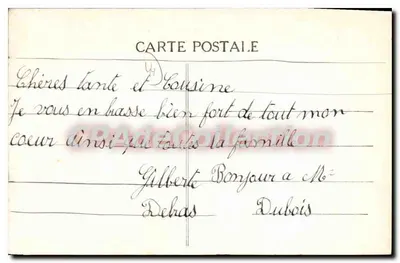 CARTE POSTALE
Chères tante et Cousine
Je vous en brasse bien fort de tout mon
coeur ainsi que toutes la famille
Gilberte Bonjour a Mr
Debas Dubois